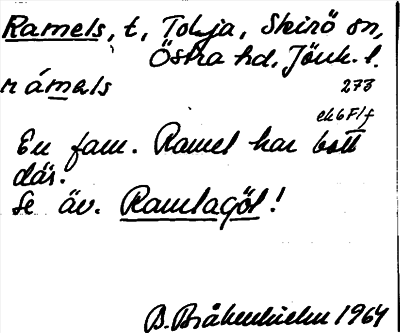 Ramels, t, Tolja, Skirö sn,
Östra hd, Jönk. l.
rámals 273
ek6F1f
En fam. Ramel har bott
där.
Se äv. Ramlagöl!
B. Bråkenhielm 1964